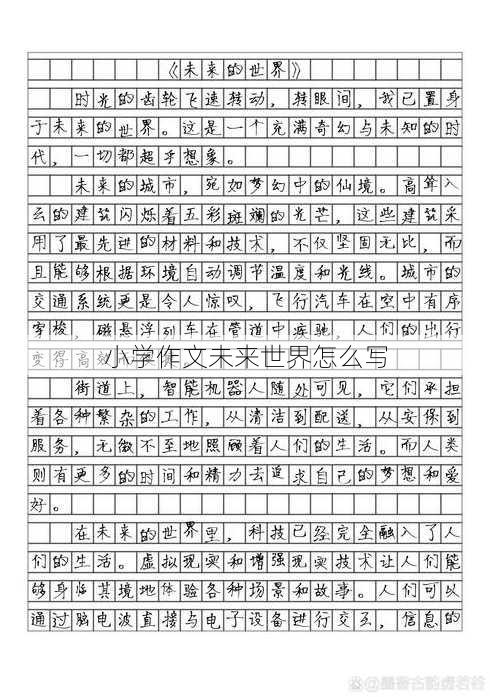 《未来的世界》
时光的齿轮飞速转动，转眼间，我已置身
于未来的世界。这是一个充满奇幻与未知的时
代，一切都超乎想象。
未来的城市，宛如梦幻中的仙境。高耸入
云的建筑闪烁着五彩斑斓的光芒，这些建筑采
用了最先进的材料和技术，不仅坚固无比，而
且能够根据环境自动调节温度和光线。城市的
交通系统更是令人惊叹，飞行汽车在空中有序
穿梭，磁悬浮列车在管道中疾驰，人们的出行
变得高效
小学作文未来世界怎么写
街道上，智能机器人随处可见，它们承担
着各种繁杂的工作，从清洁到配送，从安保到
服务，无微不至地照顾着人们的生活。而人类
则有更多的时间和精力去追求自己的梦想和爱
好。
在未来的世界里，科技已经完全融入了人
们的生活。虚拟现实和增强现实技术让人们能
够身临其境地体验各种场景和故事。人们可以
通过脑电波直接与电子设备进行交互，信息的